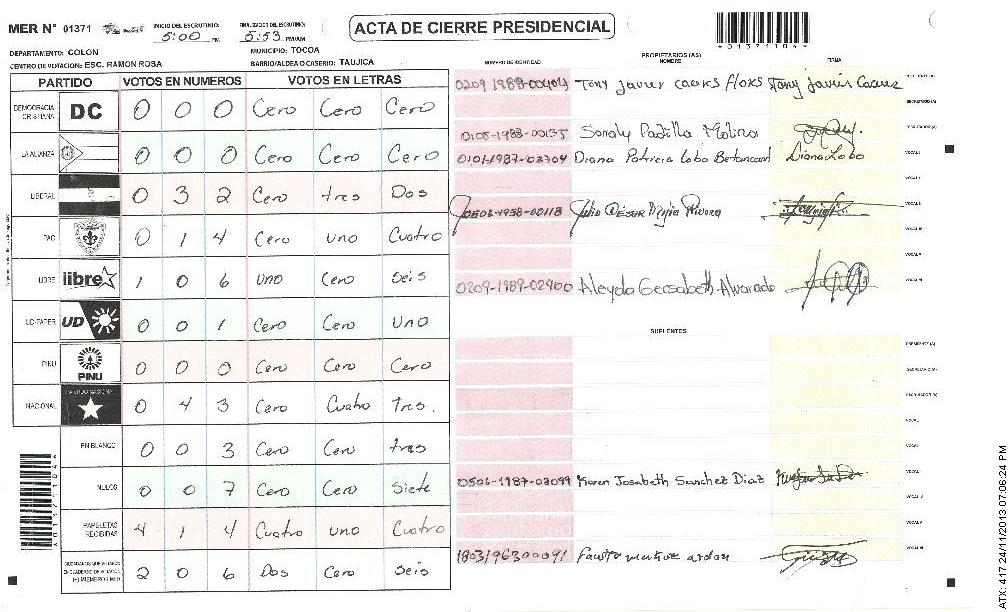 MER N° 01371
INICIO DEL ESCRUTINIO: 5:00 PM
FINALIZACION DEL ESCRUTINIO: 5:53 PM/AM
ACTA DE CIERRE PRESIDENCIAL
*01371104*
DEPARTAMENTO: COLON
MUNICIPIO: TOCOA
CENTRO DE VOTACION: ESC. RAMON ROSA
BARRIO/ALDEA O CASERIO: TAUJICA
PARTIDO VOTOS EN NUMEROS VOTOS EN LETRAS
DEMOCRACIA CRISTIANA DC 0 0 0 Cero Cero Cero
LA ALIANZA 0 0 0 Cero Cero Cero
LIBERAL 0 3 2 Cero tres Dos
PAC 0 1 4 Cero uno Cuatro
LIBRE libre 1 0 6 uno Cero seis
UD-FAPER UD 0 0 1 Cero Cero Uno
PINU PINU 0 0 0 Cero Cero Cero
NACIONAL PARTIDO NACIONAL 0 4 3 Cero Cuatro Tres.
EN BLANCO 0 0 3 Cero Cero tres
NULOS 0 0 7 Cero Cero Siete
PAPELETAS RECIBIDAS 4 1 4 Cuatro uno Cuatro
CIUDADANOS QUE VOTARON EN CUADERNO DE VOTACION (+) MIEMBROS MER 2 0 6 Dos Cero seis
PROPIETARIOS (AS)
NUMERO DE IDENTIDAD NOMBRE FIRMA
0209 1988-00404 Tony Javier caceres flores Tony Javier Caceres
SECRETARIO (A)
0105-1988-00135 Sonaly Padilla Molina
ESCRUTADOR (A)
0101-1987-03704 Diana Patricia Lobo Betancourt Diana Lobo
VOCAL I
0506-1958-00118 Julio César Rivera
0209-1989-02900 Aleyda Gersabeth Alvarado
SUPLENTES
PRESIDENTE (A)
SECRETARIO (A)
ESCRUTADOR (A)
0506-1987-03099 Karen Josabeth Sanchez Diaz
1803196300091 Fausto ardon
ATX: 417 24/11/2013 07:06:24 PM